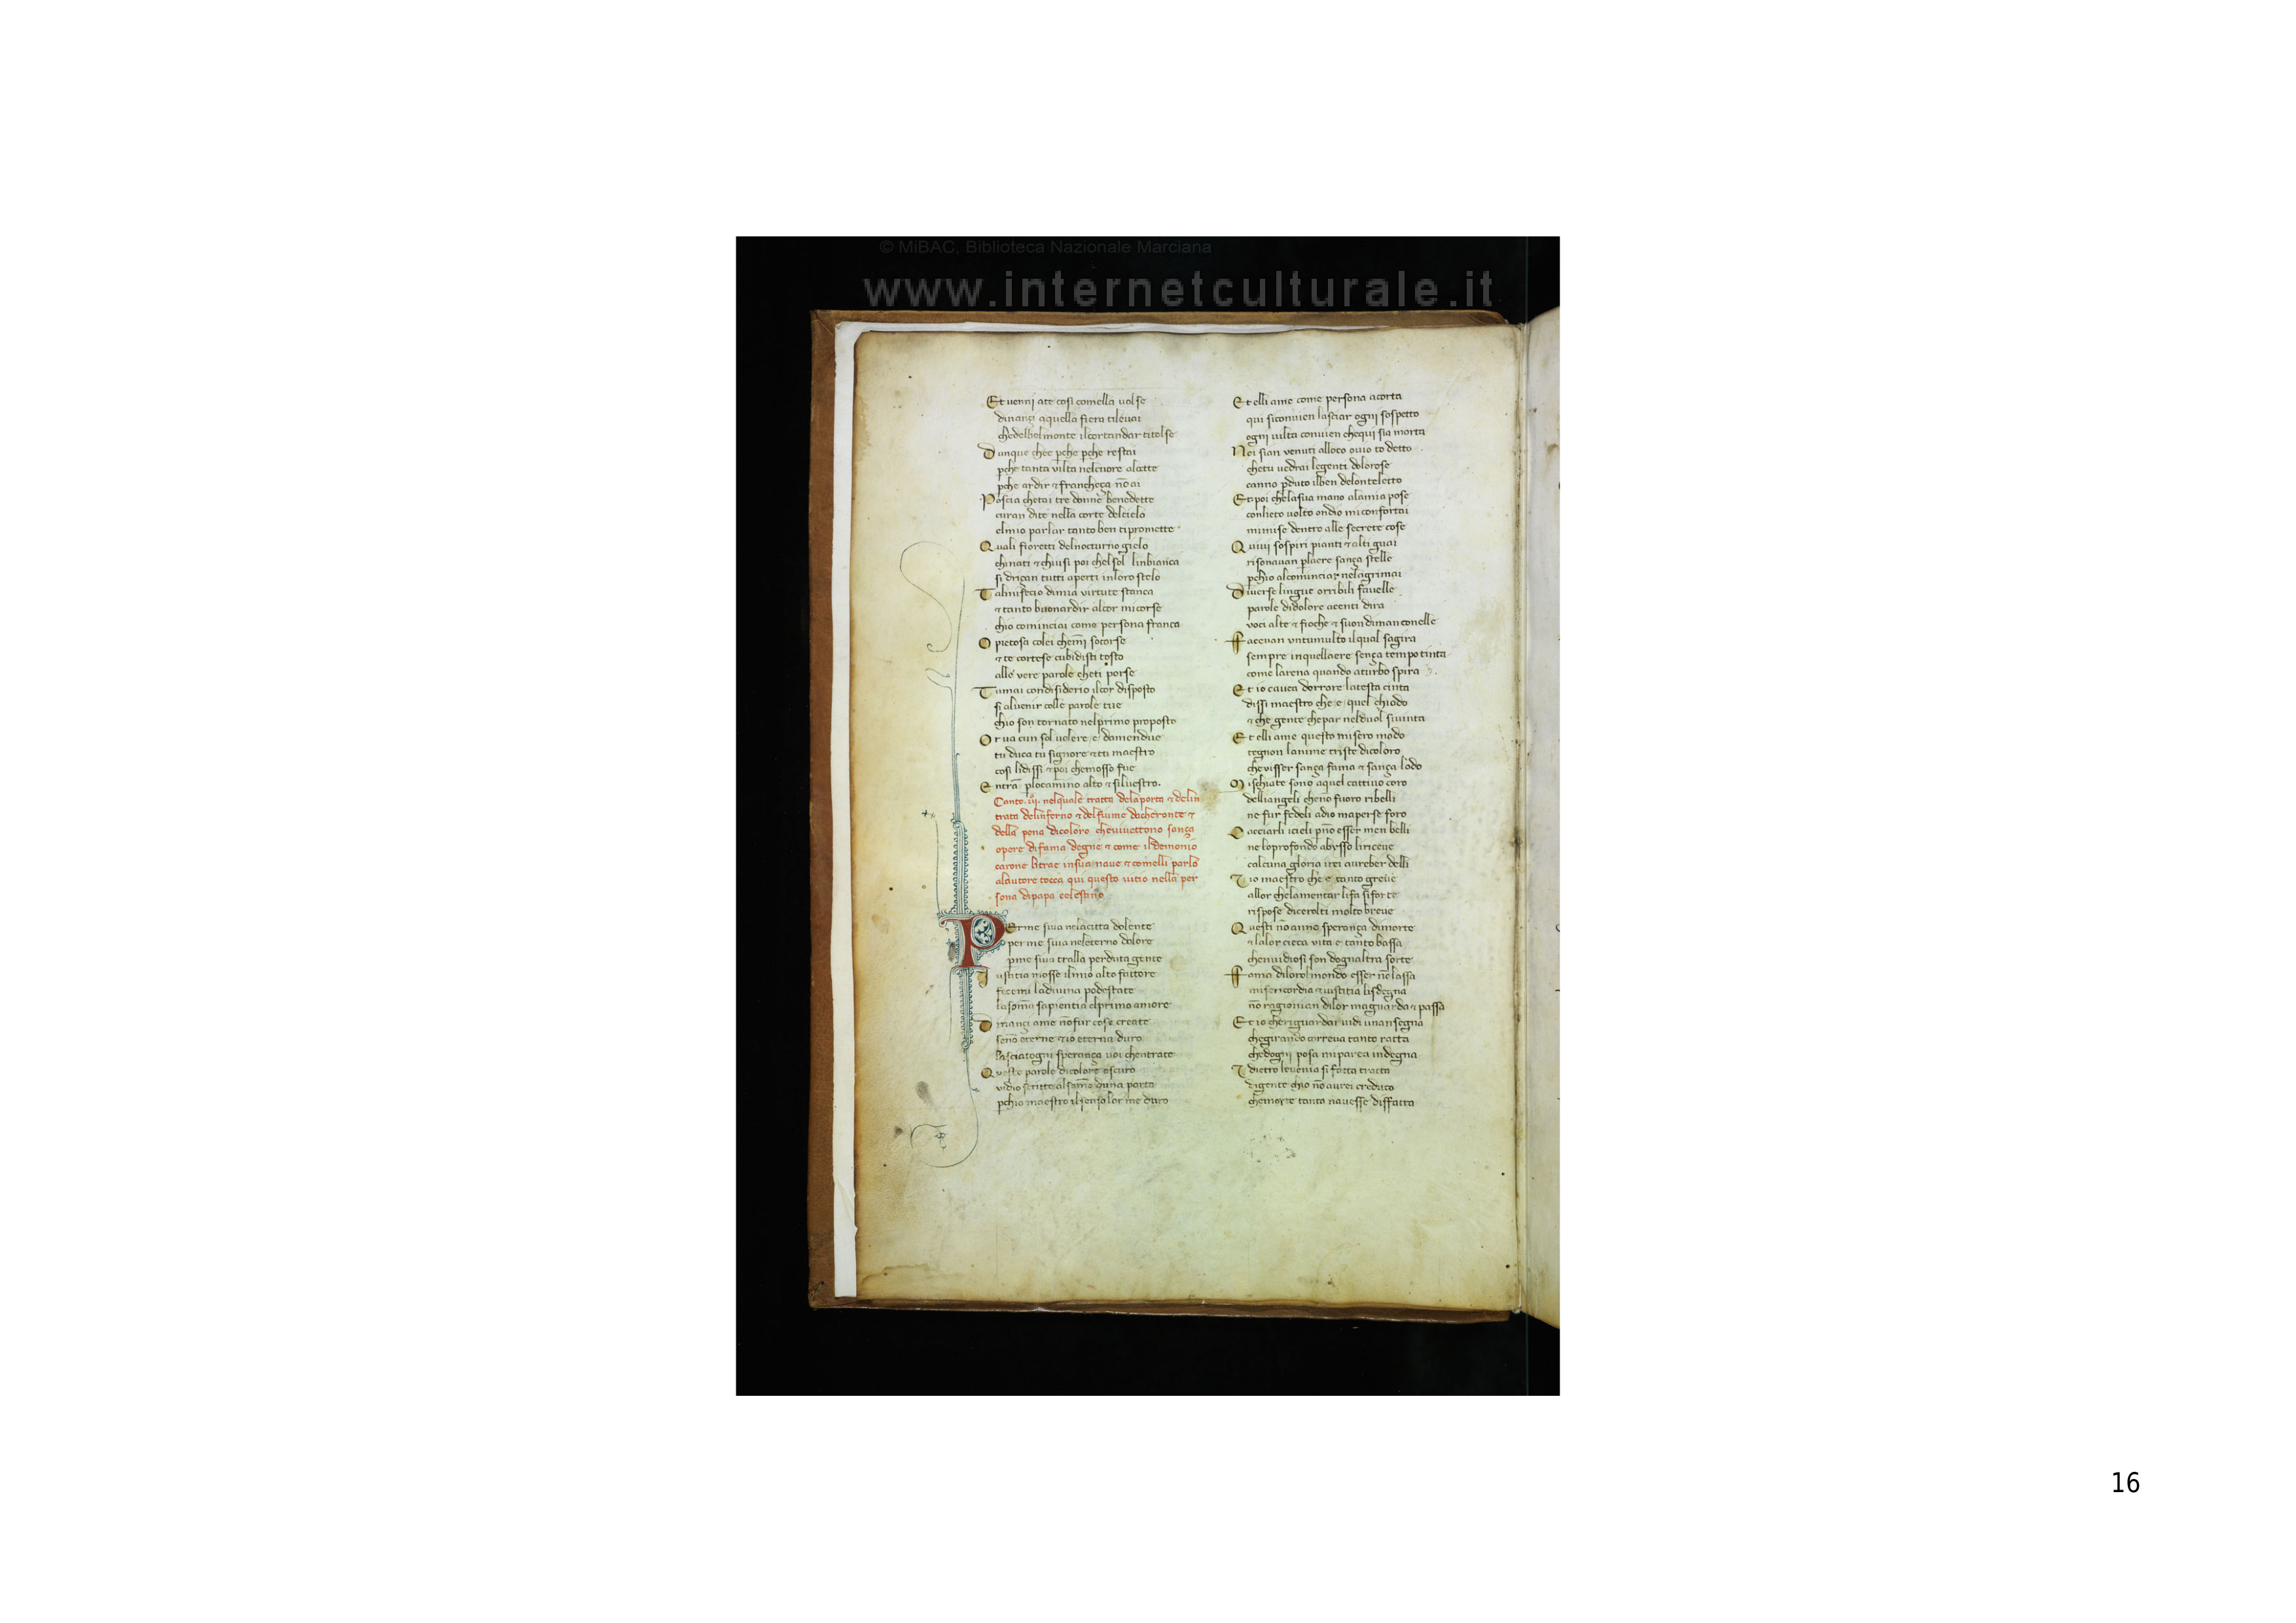 © MiBAC, Biblioteca Nazionale Marciana
www.internetculturale.it
Et uenni ate cosi comella uolse
dinançi aquella fiera tileuai
chedelbelmonte ilcortandar titolse
Dunque chee p̄che p̄che restai
p̄che tanta vilta nelcuore alatte
p̄che ardir ⁊ francheça nō ai
Poscia chetai tre donne benedette
curan dite nella corte delcielo
elmio parlar tanto ben tipromette
Quali fioretti delnocturno gielo
chinati ⁊ chiusi poi chelsol linbianca
si driçan tutti aperti inloro stelo
Talmifecio dimia virtute stanca
⁊ tanto buonardir alcor micorse
chio cominciai come persona franca
O pietosa colei chemī socorse
⁊ te cortese cubidisti tosto
alle vere parole cheti porse
Tumai condisiderio ilcor disposto
si aluenir colle parole tue
chio son tornato nelprimo proposto
Or ua cun sol uolere e damendue
tu duca tu signore ⁊ tu maestro
cosi lidissi ⁊ poi chemosso fue
Entrā p̄locamino alto ⁊ siluestro.
Canto .iii. nelquale tratta delaporta ⁊ delin
trata delinferno ⁊ delfiume dacheronte ⁊
della pena dicoloro cheuiuettono sança
opere difama degne ⁊ come ildemonio
carone litrae insua naue ⁊ comelli parlo
alautore tocca qui questo uitio nella per
sona dipapa celestino
PErme siua nelacitta dolente
per me siua neleterno dolore
p̄me siua tralla perduta gente
Iustitia mosse ilmio alto fattore
fecemi ladiuina podestate
lasomā sapientia elprimo amore
Dinançi ame nōfur cose create
senō eterne ⁊ io eterna duro
lasciatogni sperança uoi chentrate
Queste parole dicolore oscuro
vidio scritte alsomō duna porta
p̄chio maestro ilsenso lor me duro
Et elli ame come persona acorta
qui siconuien lasciar ogni sospetto
ogni uilta conuien chequi sia morta
Noi sian venuti alloco ouio to detto
chetu uedrai legenti dolorose
canno p̄duto ilben delonteletto
Et poi chelasua mano alamia pose
conlieto uolto ondio miconfortai
mimise dentro alle secrete cose
Quiui sospiri pianti ⁊ alti guai
risonauan p̄laere sança stelle
p̄chio alcominciar nelagrimai
Diuerse lingue orribili fauelle
parole didolore acenti dira
voci alte ⁊ fioche ⁊ suon diman conelle
Faceuan vntumulto ilqual sagira
sempre inquellaere sença tempo tinta
come larena quando aturbo spira
Et io cauea dorrore latesta cinta
dissi maestro che e quel chiodo
⁊ che gente chepar nelduol siuinta
Et elli ame questo misero modo
tegnon lanime triste dicoloro
chevisser sança fama ⁊ sança lodo
Mischiate sono aquel cattiuo coro
delliangeli cheno fuoro ribelli
ne fur fedeli adio maperse foro
Cacciarli icieli p̄nō esser men belli
ne loprofondo abysso liriceue
calcuna gloria irei aureber delli
⁊ io maestro che e tanto greue
allor chelamentar lifa siforte
rispose dicerolti molto breue
Questi nō anno sperança dimorte
⁊ lalor cieca vita e tanto bassa
chenuidiosi son dognaltra sorte
Fama diloro ilmondo esser nō lassa
misericordia ⁊ iustitia lisdegna
nō ragionian dilor maguarda ⁊ passa
Et io cheriguardai uidi unansegna
chegirando correua tanto ratta
chedogni posa mi parea indegna
⁊ dietro leuenia si folta tratta
digente chio nō aurei creduto
chemorte tanta nauesse diffatta
16